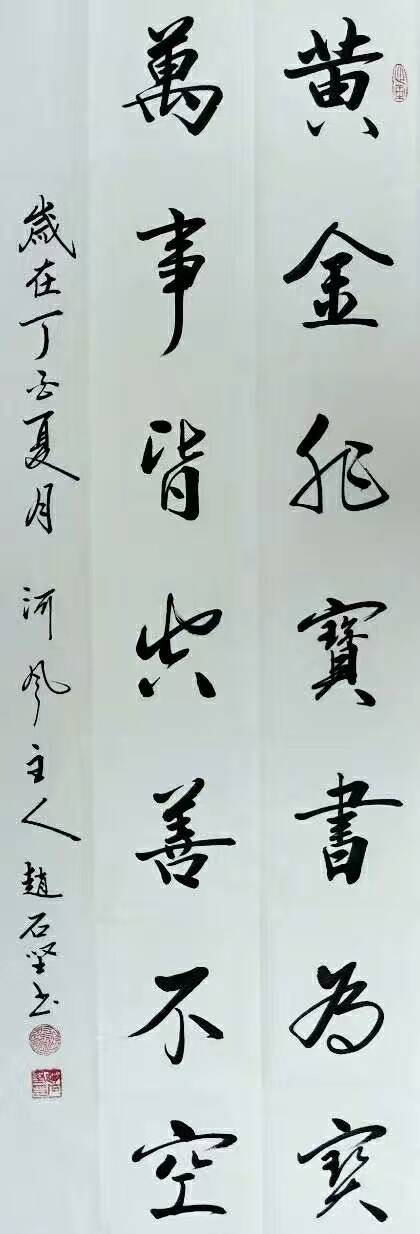 黄金非寶書為寶
萬事皆空善不空
歲在丁酉夏月 河風主人 趙石堅書